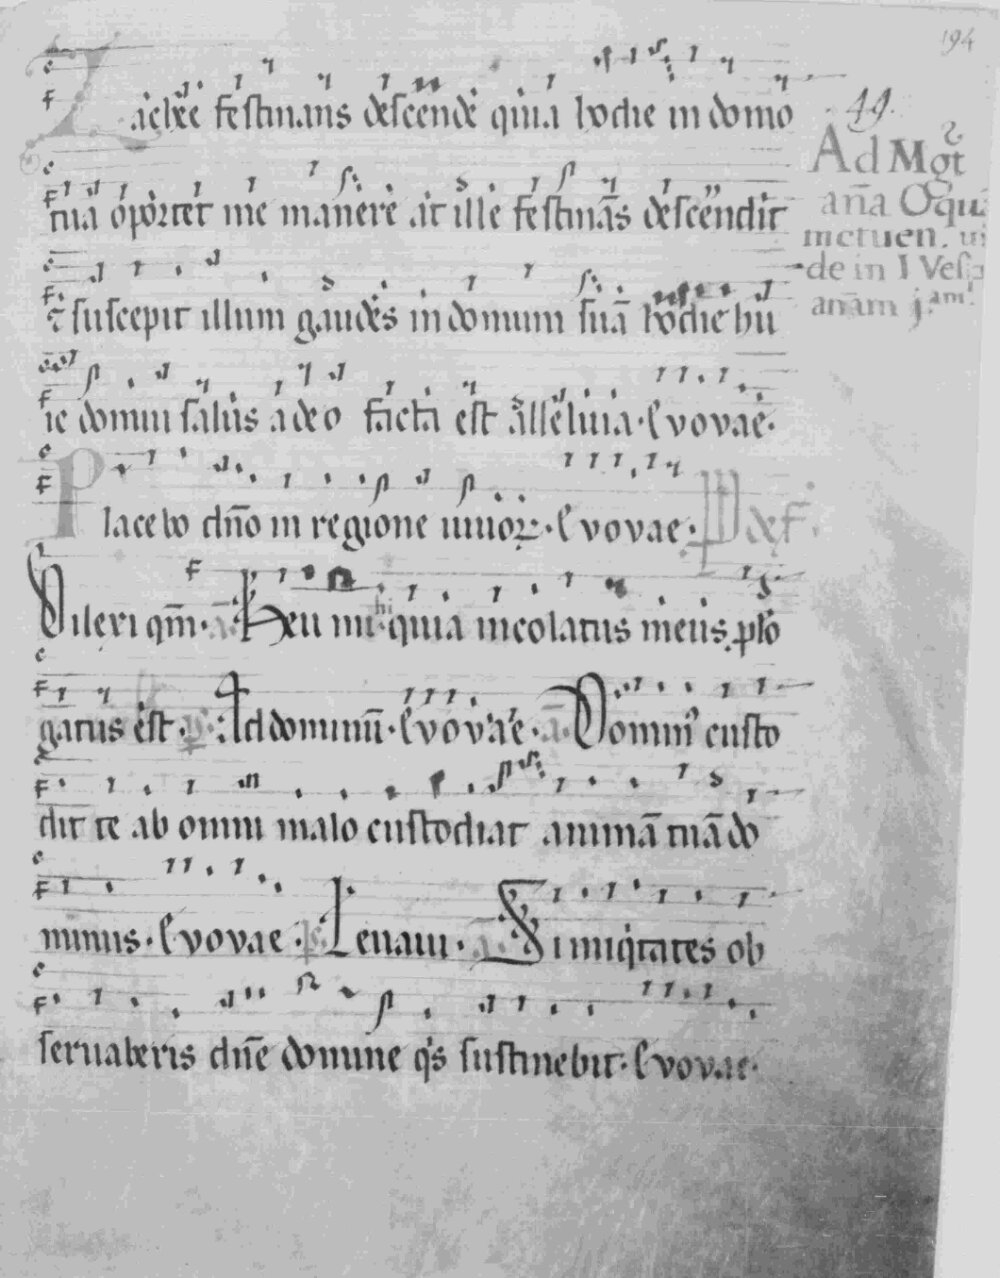 194
Zachee festinans descende quia hodie in domo
tua oportet me manere at ille festinās descendit
⁊ suscepit illum gaudēs in domum suā hodie hu
ic domui salus a deo facta est alleluia · Evovae ·
Placebo dn̄o in regione uiuoꝝ · Evovae ·
Dilexi qm̄ · a. Heu mihi quia incolatus meus plō
gatus est · Ad dominū · Evovae · a. Domin᾽ custo
dit te ab omni malo custodiat animā tuā do
minus · Evovae · Leuaui · a. Si iniqͥtates ob
seruaberis dn̄e domine qͥs sustinebit · Evovae ·
49.
Ad Mgt̄
an̄a O qui
metuen. ui
de in I Vesp
anam j.am